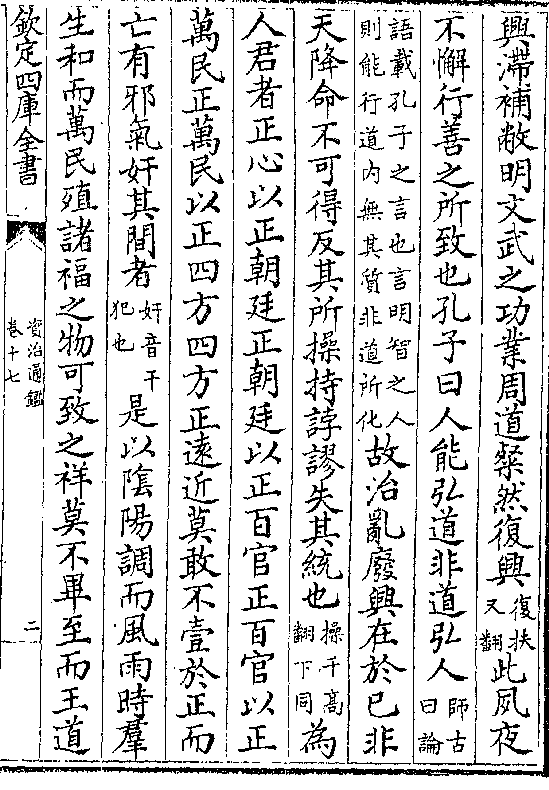 興滯補敝明文武之功業周道粲然復興復扶又翻此夙夜
不懈行善之所致也孔子曰人能弘道非道弘人師古曰論
語載孔子之言也言明智之人則能行道内無其質非道所化故治亂廢興在於已非
天降命不可得反其所操持誖謬失其統也操千高翻下同為
人君者正心以正朝廷正朝廷以正百官正百官以正
萬民正萬民以正四方四方正遠近莫敢不壹於正而
亡有邪氣奸其間者奸音干犯也是以陰陽調而風雨時羣
生和而萬民殖諸福之物可致之祥莫不畢至而王道
欽定四庫全書
資治通鑑
卷十七
二